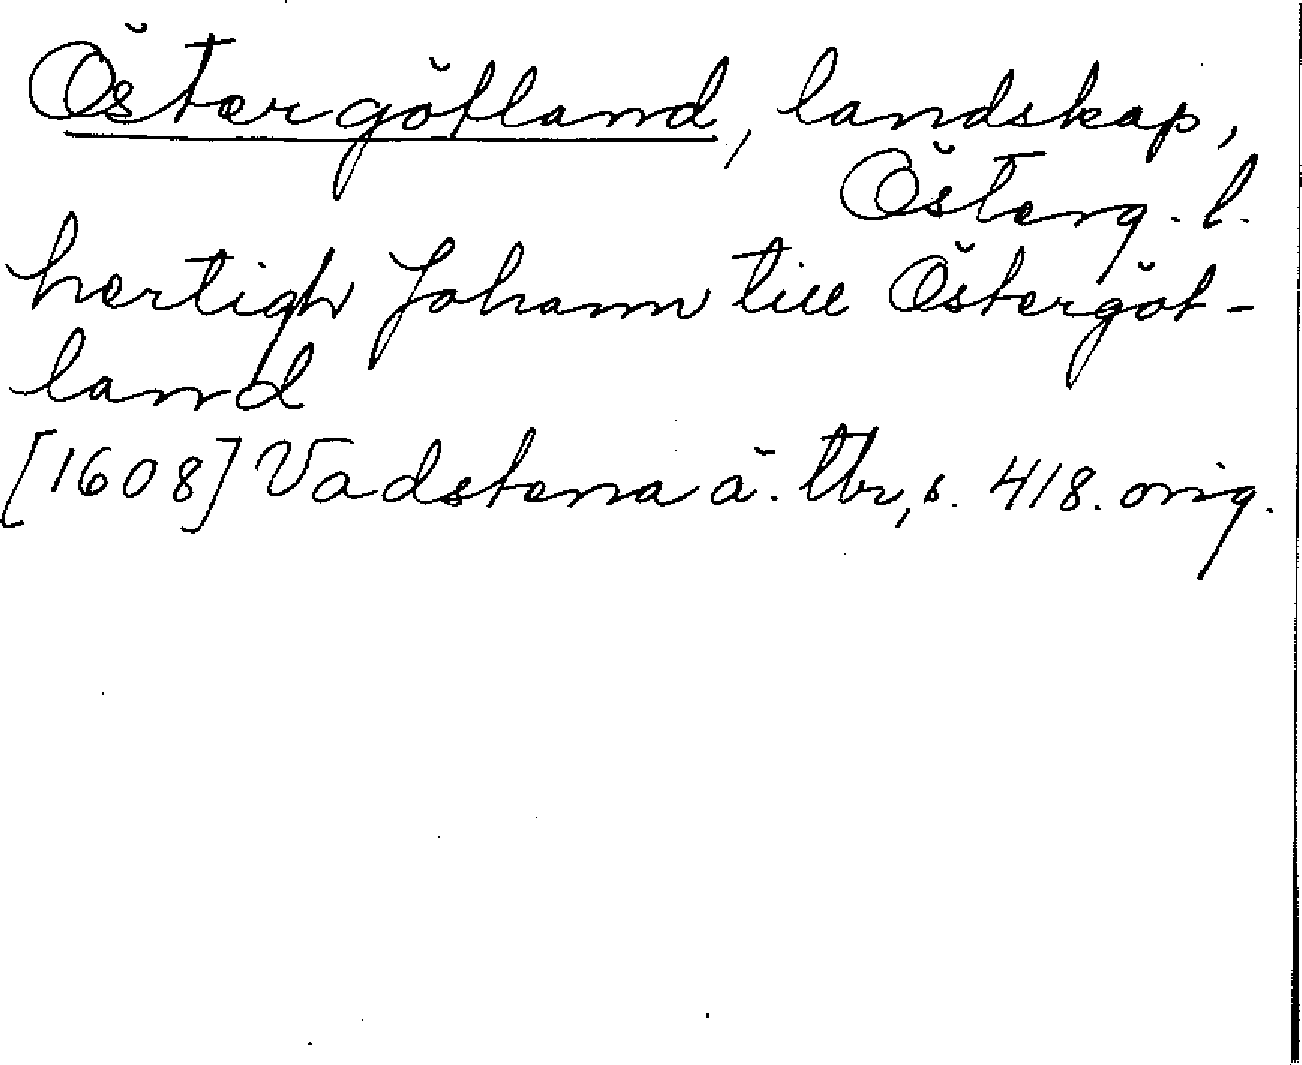 Östergötland, landskap,
Österg. l.
hertigh Johann till Östergöt-
land
[1608] Vadstena ä. tbr, s. 418. orig.